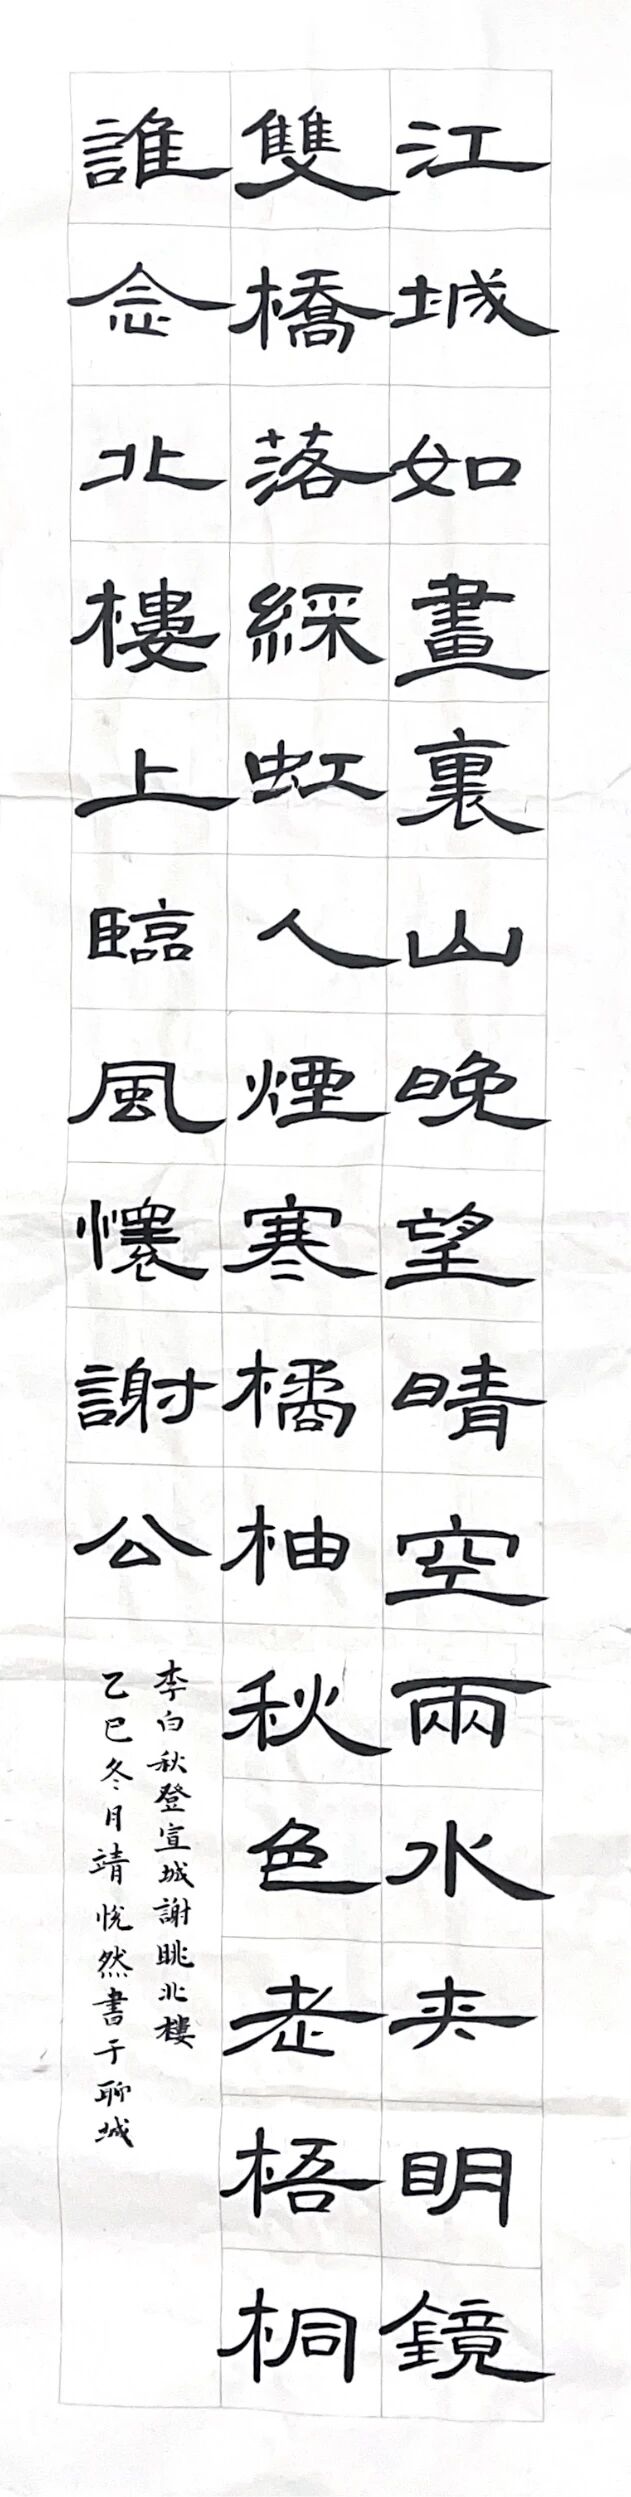 江城如畫裏山晚望晴空兩水夾明鏡
雙橋落綵虹人煙寒橘柚秋色老梧桐
誰念北樓上臨風懷謝公
李白秋登宣城謝眺北樓
乙巳冬月靖悅然書于聊城